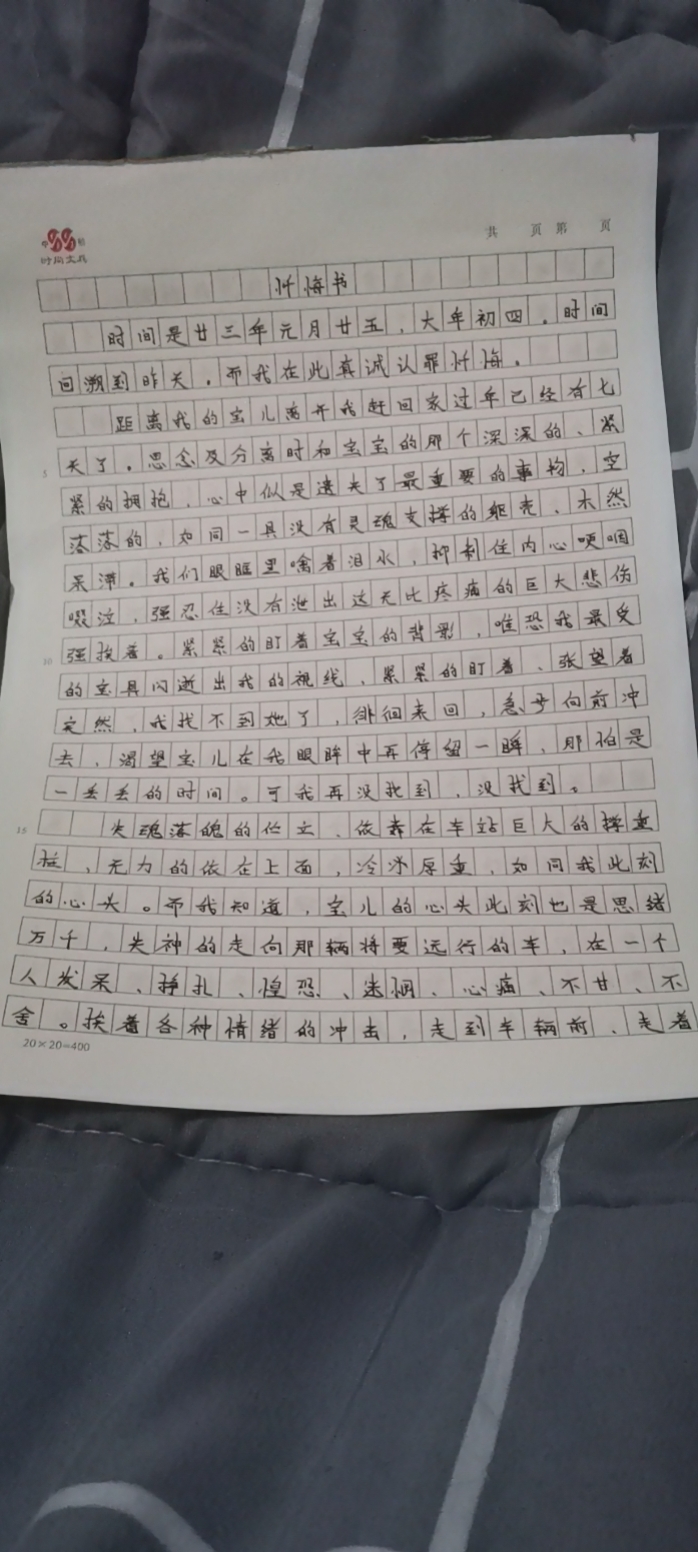 时尚文具
共 页 第 页
忏悔书
时间是廿三年元月廿五，大年初四，时间
回溯到昨天，而我在此真诚认罪忏悔。
距离我的宝儿离开我赶回家过年已经有七
天了。思念及分离时和宝宝的那个深深的、紧
紧的拥抱，心中似是遗失了最重要的事物，空
落落的，如同一具没有灵魂支撑的躯壳、木然
呆滞。我们眼眶里噙着泪水，抑制住内心哽咽
啜泣，强忍住没有泄出这无比疼痛的巨大悲伤
强挨着。紧紧的盯着宝宝的背影，唯恐我最爱
的宝具闪逝出我的视线、紧紧的盯着、张望着
突然，我找不到她了，徘徊来回，急乎向前冲
去，渴望宝儿在我眼眸中再停留一瞬，那怕是
一丢丢的时间。可我再没找到，没找到。
失魂落魄的伫立、依靠在车站巨大的撑重
柱、无力的依在上面，冷冰厚重，如同我此刻
的心头。而我知道，宝儿的心头此刻也是思绪
万千，失神的走向那辆将要远行的车，在一个
人发呆、挣扎、惶恐、迷惘、心痛、不甘、不
舍。挨着各种情绪的冲击，走到车辆前、走着
5
10
15
20×20=400